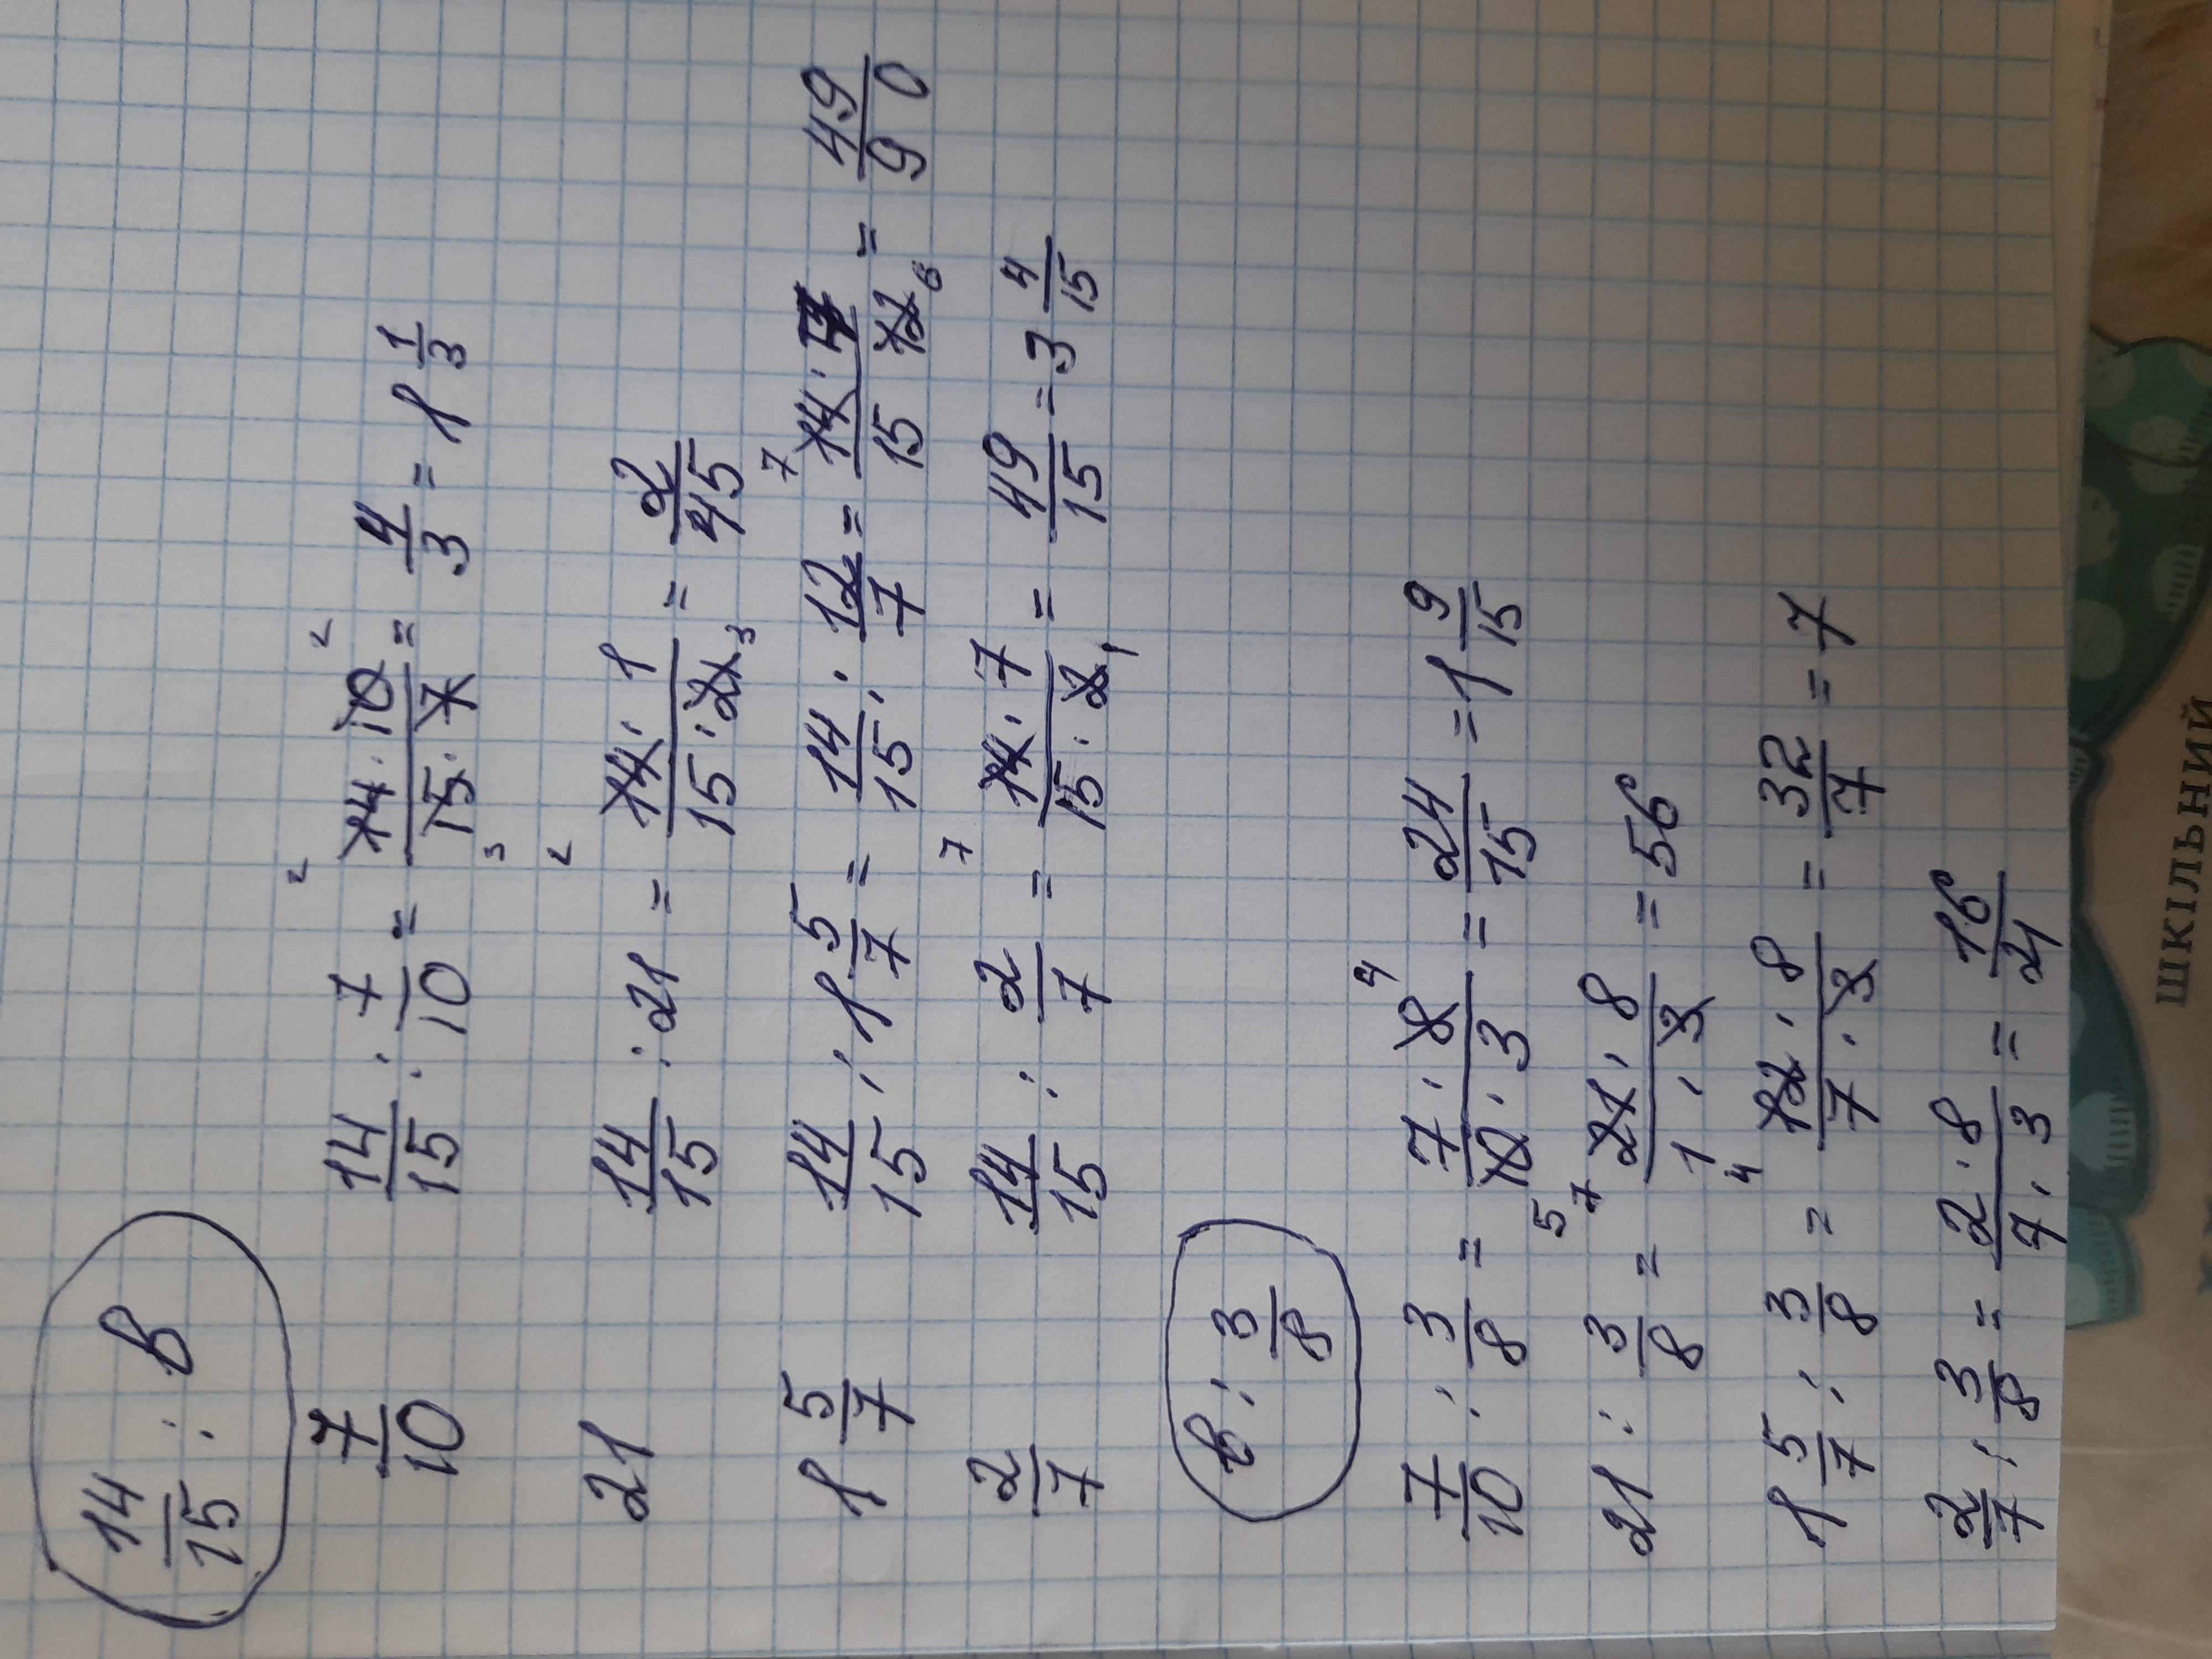 14/15 : b
7/10   14/15 : 7/10 = (14 · 10)/(15 · 7) = 4/3 = 1 1/3
21   14/15 : 21 = (14 · 1)/(15 · 21) = 2/45
1 5/7   14/15 : 1 5/7 = 14/15 : 12/7 = (14 · 7)/(15 12) = 49/90
2/7   14/15 : 2/7 = (14 · 7)/(15 · 2) = 49/15 = 3 4/15
b : 3/8
7/10 : 3/8 = (7 · 8)/(10 · 3) = 24/15 = 1 9/15
21 : 3/8 = (21 · 8)/(1 · 3) = 56
1 5/7 : 3/8 = (12 · 8)/(7 · 3) = 32/7 = 7
2/7 : 3/8 = (2 · 8)/(7 · 3) = 16/21
ШКІЛЬНИЙ